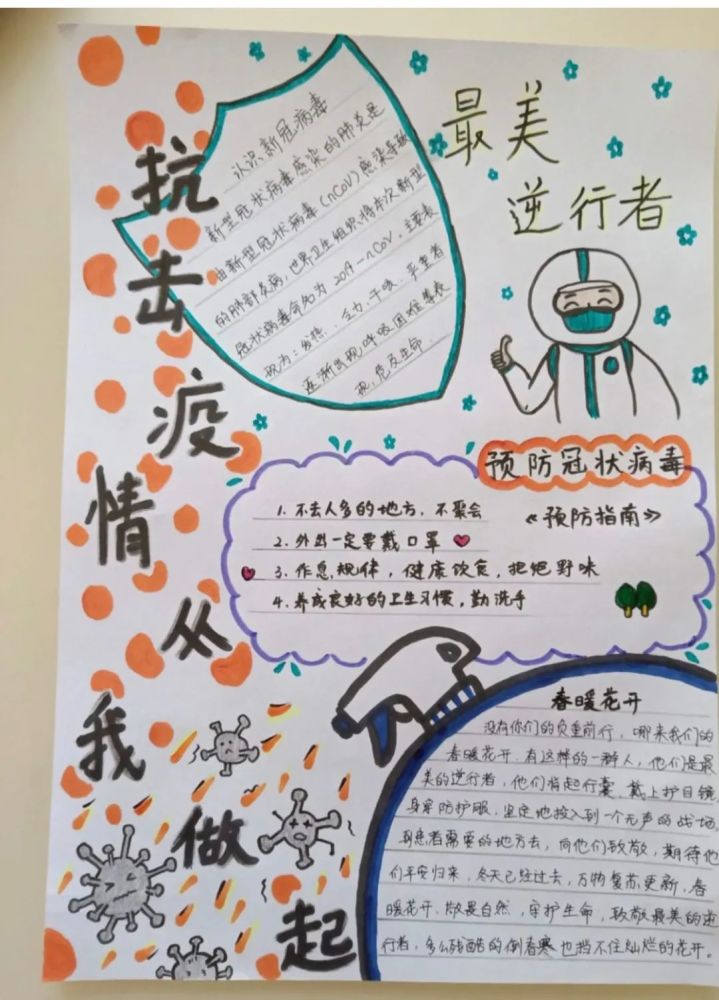 抗击疫情从我做起
认识新冠病毒
新型冠状病毒感染的肺炎是
由新型冠状病毒(nCoV)感染导致
的肺部炎病,世界卫生组织将本次新型
冠状病毒命名为2019-nCoV.主要表
现为:发热、乏力、干咳、严重者
逐渐出现呼吸困难等表
现,危及生命.
最美
逆行者
预防冠状病毒
《预防指南》
1.不去人多的地方,不聚会
2.外出一定要戴口罩
3.作息规律,健康饮食,拒绝野味
4.养成良好的卫生习惯,勤洗手
春暖花开
没有你们的负重前行,哪来我们的
春暖花开.有这样的一群人,他们是最
美的逆行者,他们背起行囊,戴上护目镜
身穿防护服,坚定地投入到一个无声的战场
到患者需要的地方去,向他们致敬,期待他
们平安归来,冬天已经过去,万物复苏更新,春
暖花开.敬畏自然,守护生命,致敬最美的逆
行者,多么残酷的倒春寒也挡不住灿烂的花开。